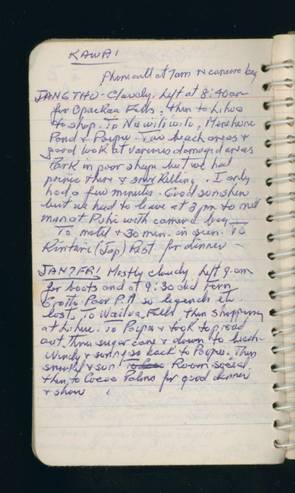 KAWAI
Phone call at 7am re camera bag
JAN 6 THU - Cloudy. Left at 8:40am
for Opaekaa Falls, then to Lihue
to shop. To Nawiliwili, Menehune
Pond & Poipu. Two beach areas &
good look at various damaged areas
Park in poor shape but we had
picnic there & snorkelling. I only
had a few minutes. Good sunshine
but we had to leave at 3 pm to meet
man at Puhi with camera bag.
To motel & 30 min. in sun. To
Kintaro (Jap) Rest for dinner
JAN 7 FRI Mostly cloudy left 9 am
for boats and at 9:30 did Fern
Grotto. Poor P.A. so legends etc
lost. To Wailua Falls, then shopping
at Lihue. To Poipu & took
out. Thru sugar cane & down to beach
Windy & so back to Poipu. Then
snorkel & sun Room
then to Cocoa Palms for good dinner
& show